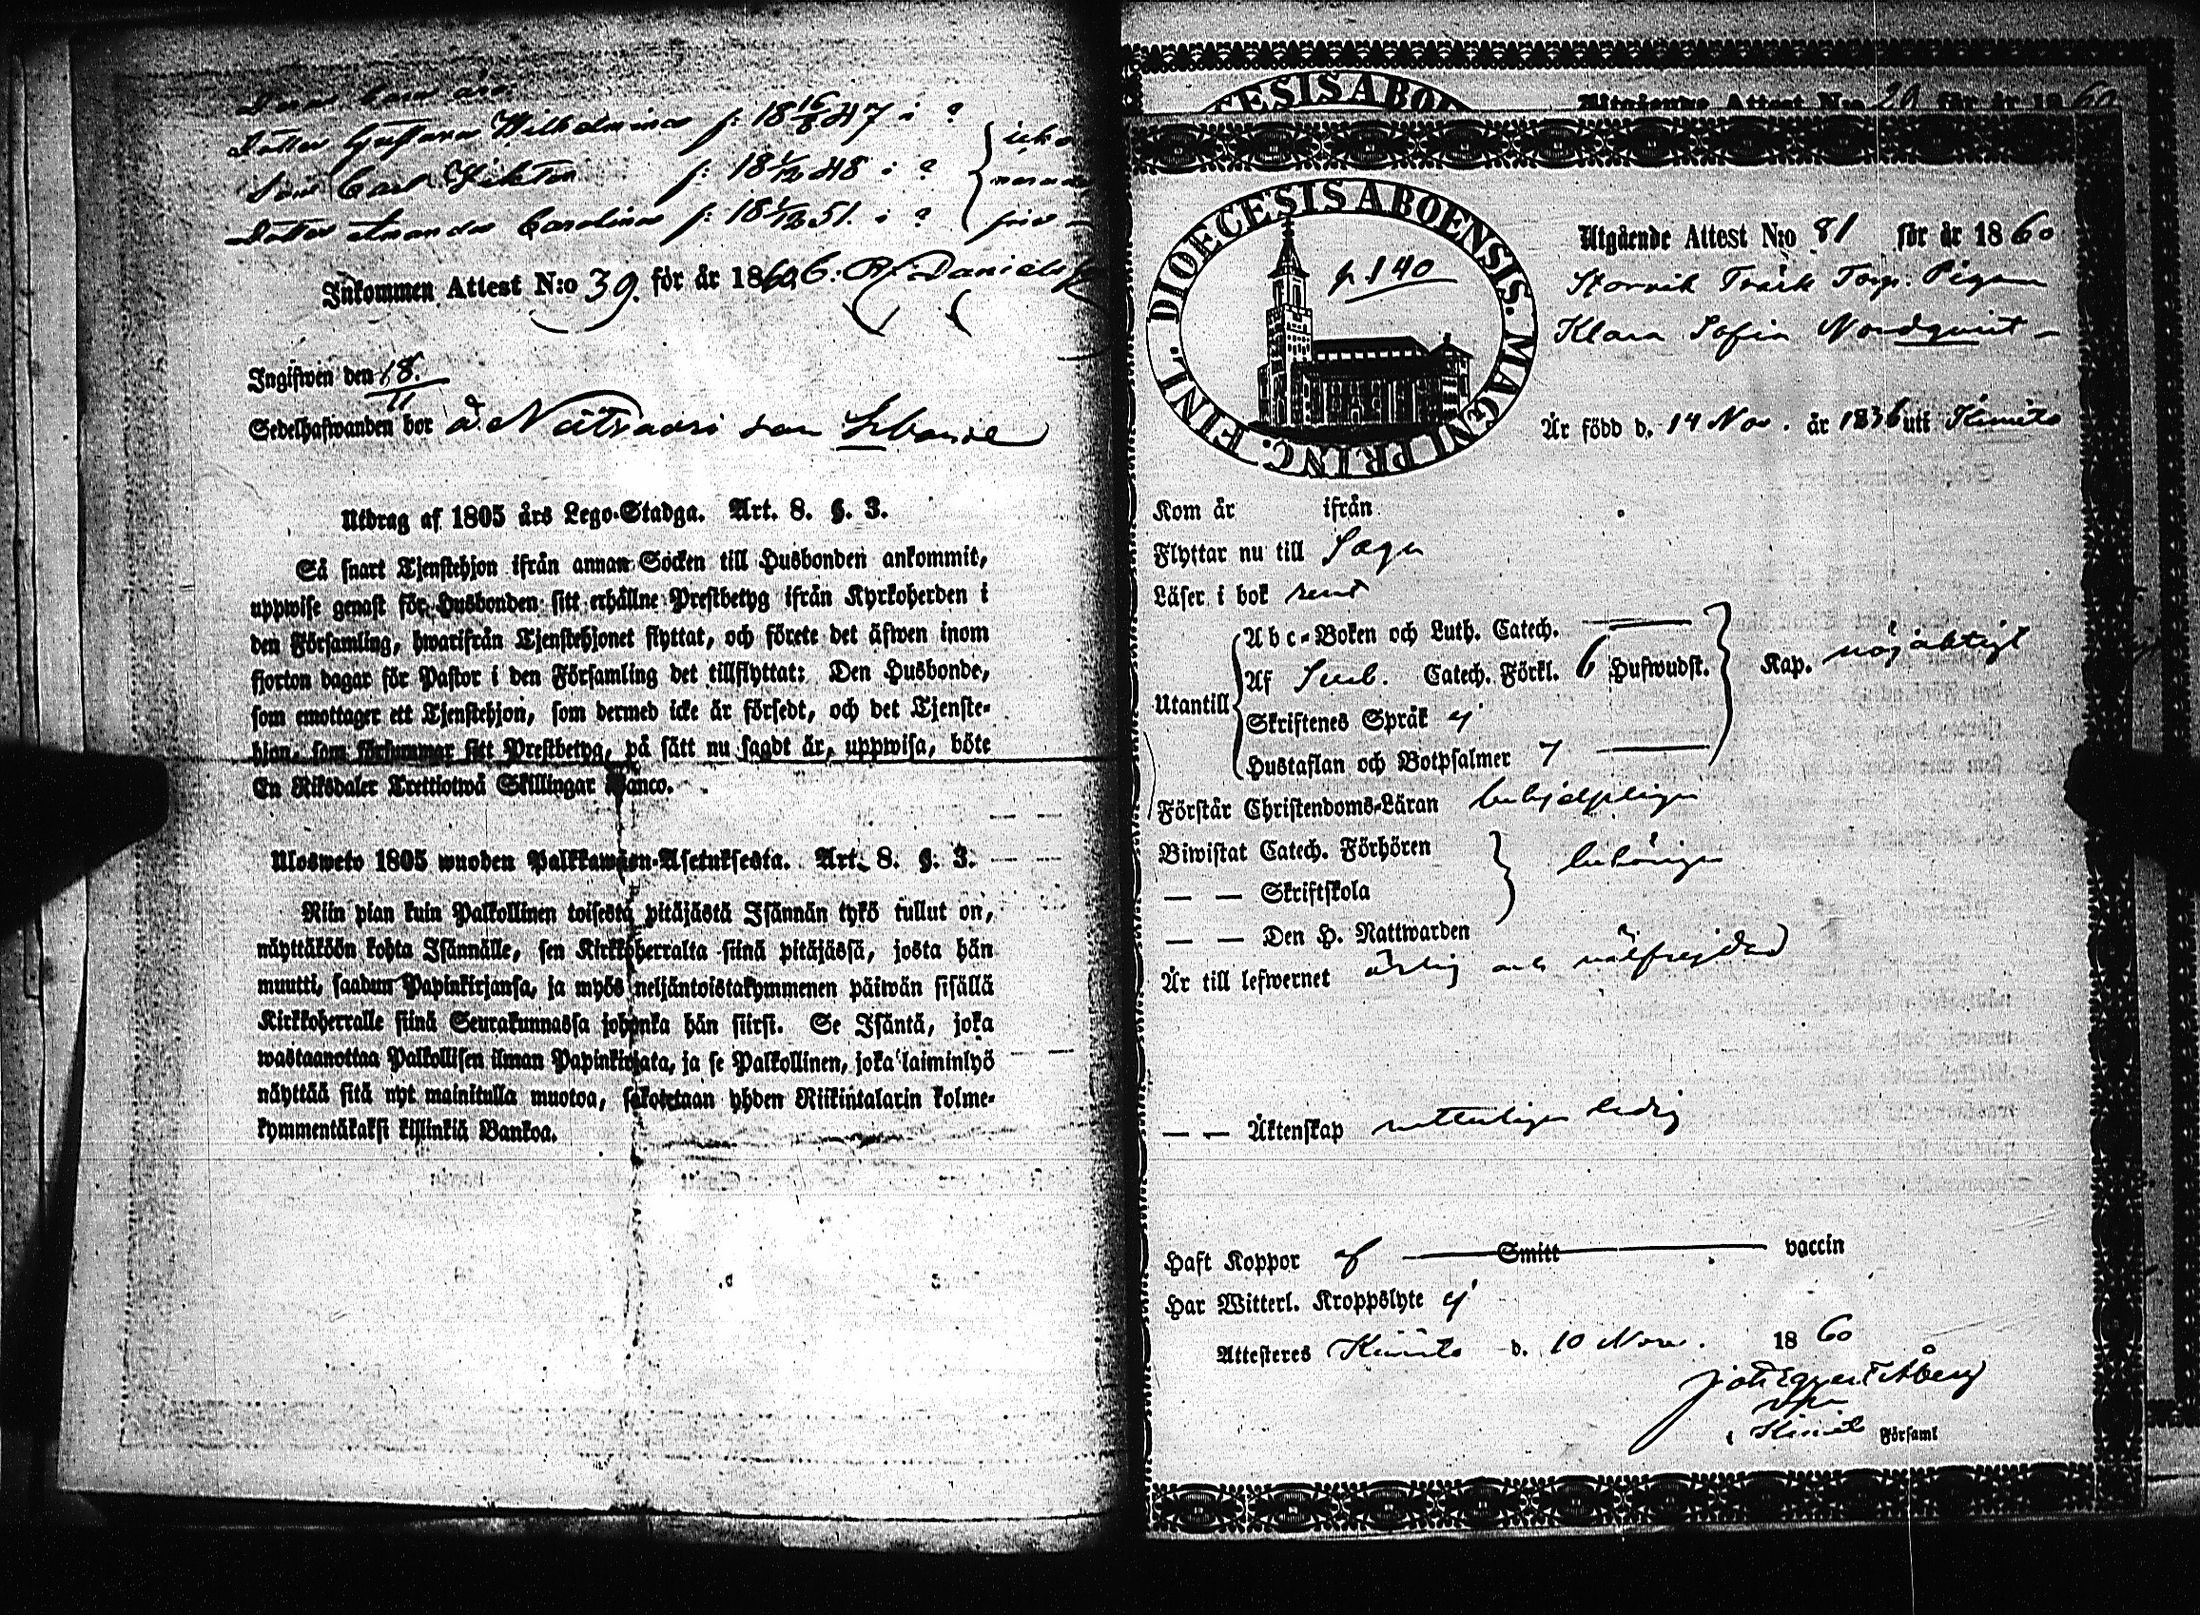 Deras barn äro:
Dotter Gustava Wilhelmina f: 18 16/8 47 i ?
Son Carl Viktor f: 18 1/12 48 i ?
Dotter Amanda Carolina f: 18 1/12 51. i ?
icke
Inkommen Attest N:o 39. för år 1860.
Ingifwen den 18/11
Sedelhafwanden bor å Nätsaari som
Utdrag af 1805 års Lego-Stadga. Art. 8. §. 3.
Så snart Tjenstehjon ifrån annan Socken till Husbonden ankommit,
uppwise genast för Husbonden sitt erhållne Prestbetyg ifrån Kyrkoherden i
den Församling, hwarifrån Tjenstehjonet flyttat, och förete det äfwen inom
fjorton dagar för Pastor i den Församling det tillflyttat: Den Husbonde,
som emottager ett Tjenstehjon, som dermed icke är försedt, och det Tjenste-
hjon, som försummar sitt Prestbetyg, på sätt nu sagdt är, uppwisa, böte
En Riksdaler Trettiotwå Skillingar Banco.
Ulosweto 1805 wuoden Palkkawäen-Asetuksesta. Art. 8. §. 3.
Niin pian kuin Palkollinen toisesta pitäjästä Isännän tykö tullut on,
näyttäköön kohta Isännälle, sen Kirkkoherralta siinä pitäjässä, josta hän
muutti, saadun Papinkirjansa, ja myös neljäntoistakymmenen päiwän sisällä
Kirkkoherralle siinä Seurakunnassa johonka hän siirsi. Se Isäntä, joka
wastaanottaa Palkollisen ilman Papinkirjata, ja se Palkollinen, joka laiminlyö
näyttää sitä nyt mainitulla muotoa, sakotetaan yhden Riikintalarin kolme-
kymmentäkaksi killinkiä Bankoa.
Utgående Attest N:o 29 för år 1860
DIOECESIS ABOENSIS. MAGNI PRINC. FINL.
p. 140
Utgående Attest N:o 81 för år 1860
Storvik Träsk Torp. Pigan
Klara Sofia Nordqvist
Är född d. 14 Nov. år 1836 uti Kimito
Kom år ifrån
Flyttar nu till Sagu
Läser i bok rent
Utantill
Abc-Boken och Luth. Catech.
Af Sveb. Catech. Förkl. 6 Hufwudst.
Kap. nöjaktigt
Skriftenes Språk ej
Hustaflan och Botpsalmer 7
Förstår Christendoms-Läran behjelpligen
Biwistat Catech. Förhören
— — Skriftskola
behörigen
— — Den H. Nattwarden
Är till lefwernet ärlig och välfrejdad
— — Äktenskap vetterligen ledig
Haft Koppor af Smitt vaccin
Har Witterl. Kroppslyte ej
Attesteres Kimito d. 10 Nov. 1860
i Kimito Församl